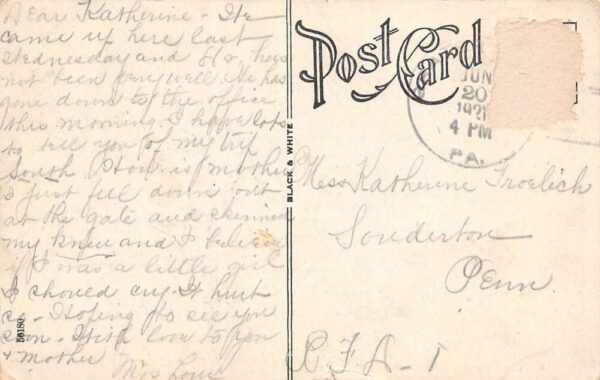 Dear Katherine - We
came up here last
Wednesday and Mr. has
not been very well he has
gone down to the office
this morning. I have lots
to tell you of my trip
South. How is mother
I just fell down out
at the gate and skinned
my knee and I believe
if I was a little girl
I should cry. It hurt
so - Hoping to see you
soon - With love to you
& mother
Mrs
56180
BLACK & WHITE
Post Card
JUN
20
4 PM
PA.
Miss Katherine Froelich
Souderton
Penn